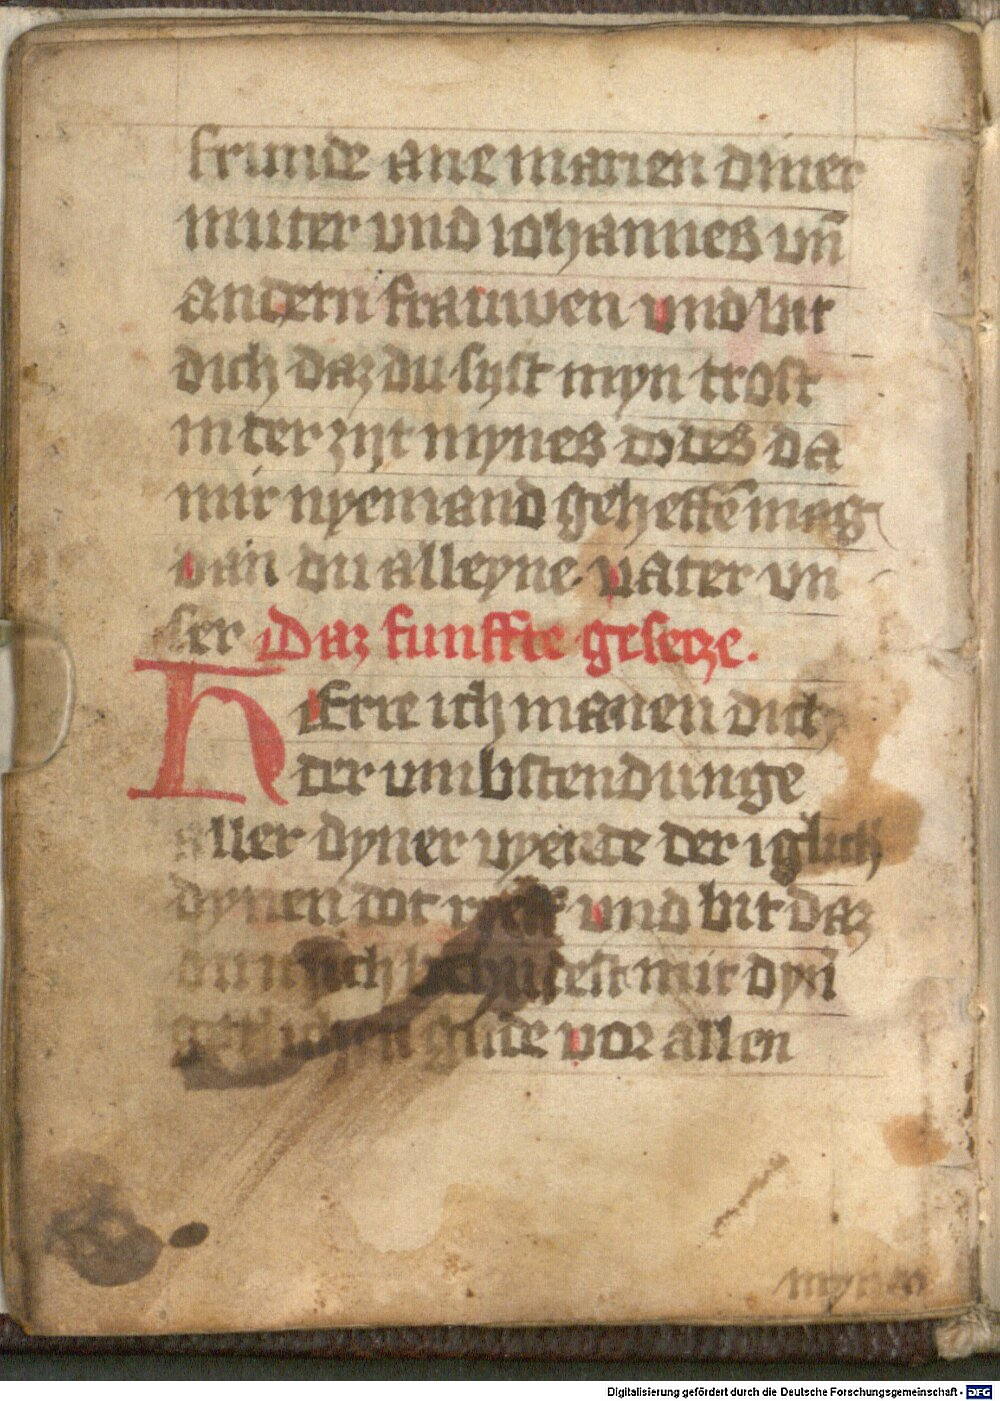 frunde ane marien diner
muter vnd iohannes vn̄
andern frauwen vnd bit
dich daz du syst myn trost
in der zijt mynes dodes da
mir nyemand gehelffē mag
dan du alleyne vater vn
ser Daz funffte gesetze.
HErre ich manen dich
der umbstendunge
aller dyner vyende der iglich
dynen dot rieff vnd bit daz
du mich beschudest mit dyn̄
gotlichen gnade vor allen
mynen
Digitalisierung gefördert durch die Deutsche Forschungsgemeinschaft - DFG